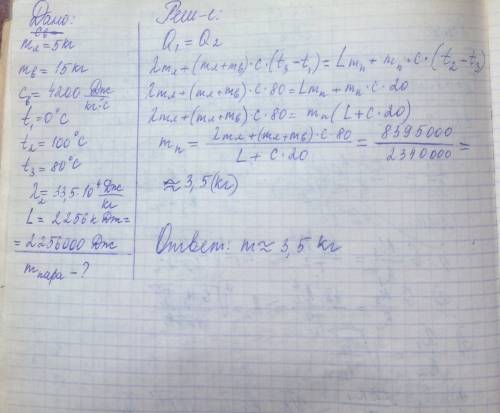 Дано:
mл=5кг
mв=15кг
cв=4200 Дж/кг·с
t₁=0°C
t₂=100°C
t₃=80°C
λ=33,5·10⁴ Дж/кг
L=2256кДж=
=2256000 Дж
mпара-?
Реш-е:
Q₁=Q₂
λmл+(mл+mв)·c·(t₃-t₁)=Lmп+mп·c·(t₂-t₃)
λmл+(mл+mв)·c·80=Lmп+mп·c·20
λmл+(mл+mв)·c·80=mп(L+c·20)
mп=λmл+(mл+mв)·c·80/L+c·20=8395000/2340000=
≈3,5(кг)
Ответ: m≈3,5 кг